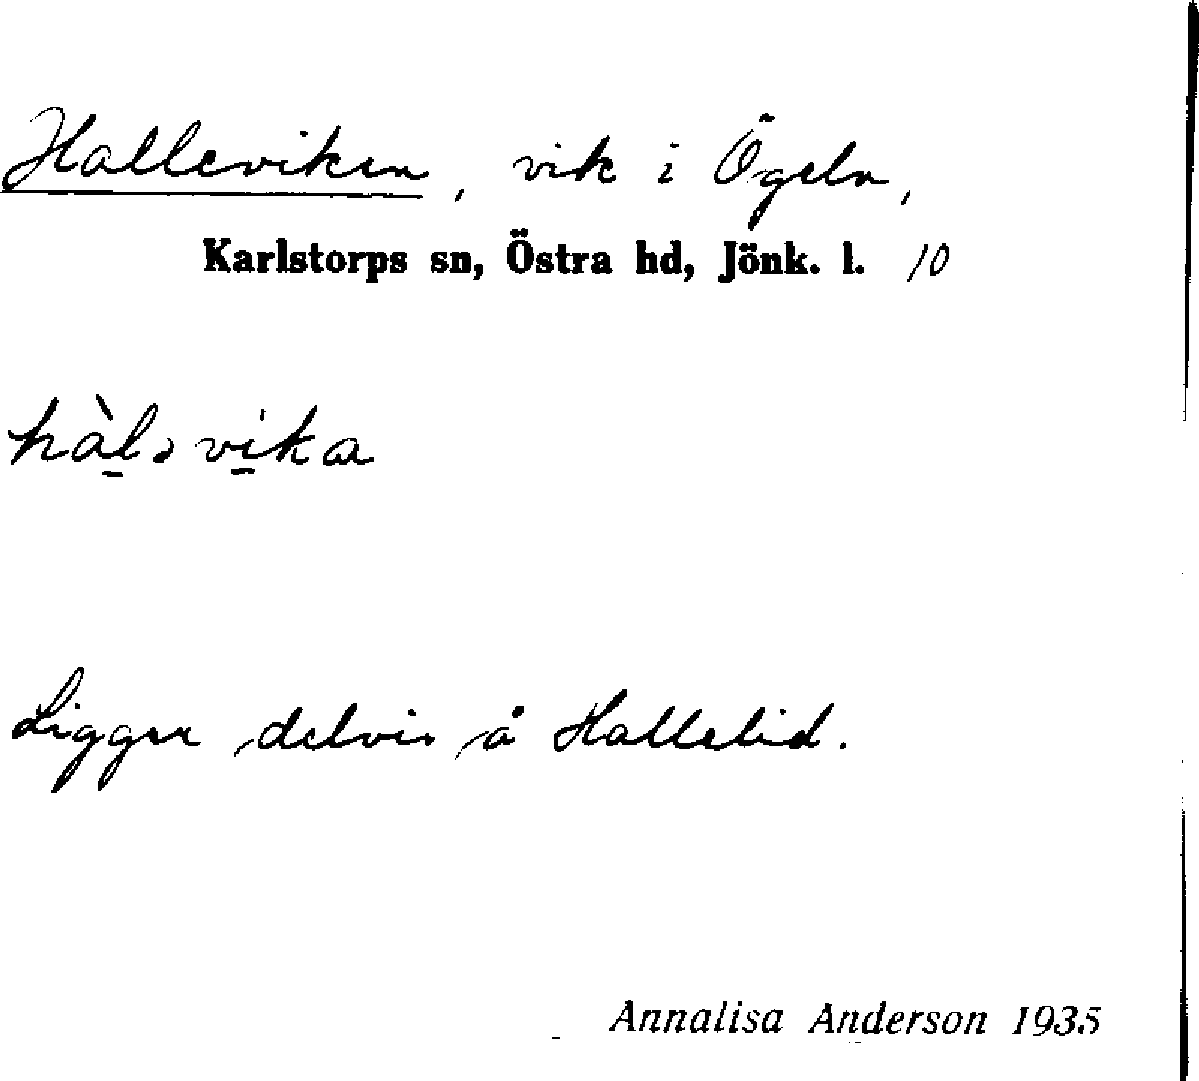 Halleviken, vik i Ögeln,
Karlstorps sn, Östra hd, Jönk. l. 10
hàləvika
Ligger delvis å Hallelid.
Annalisa Anderson 1935